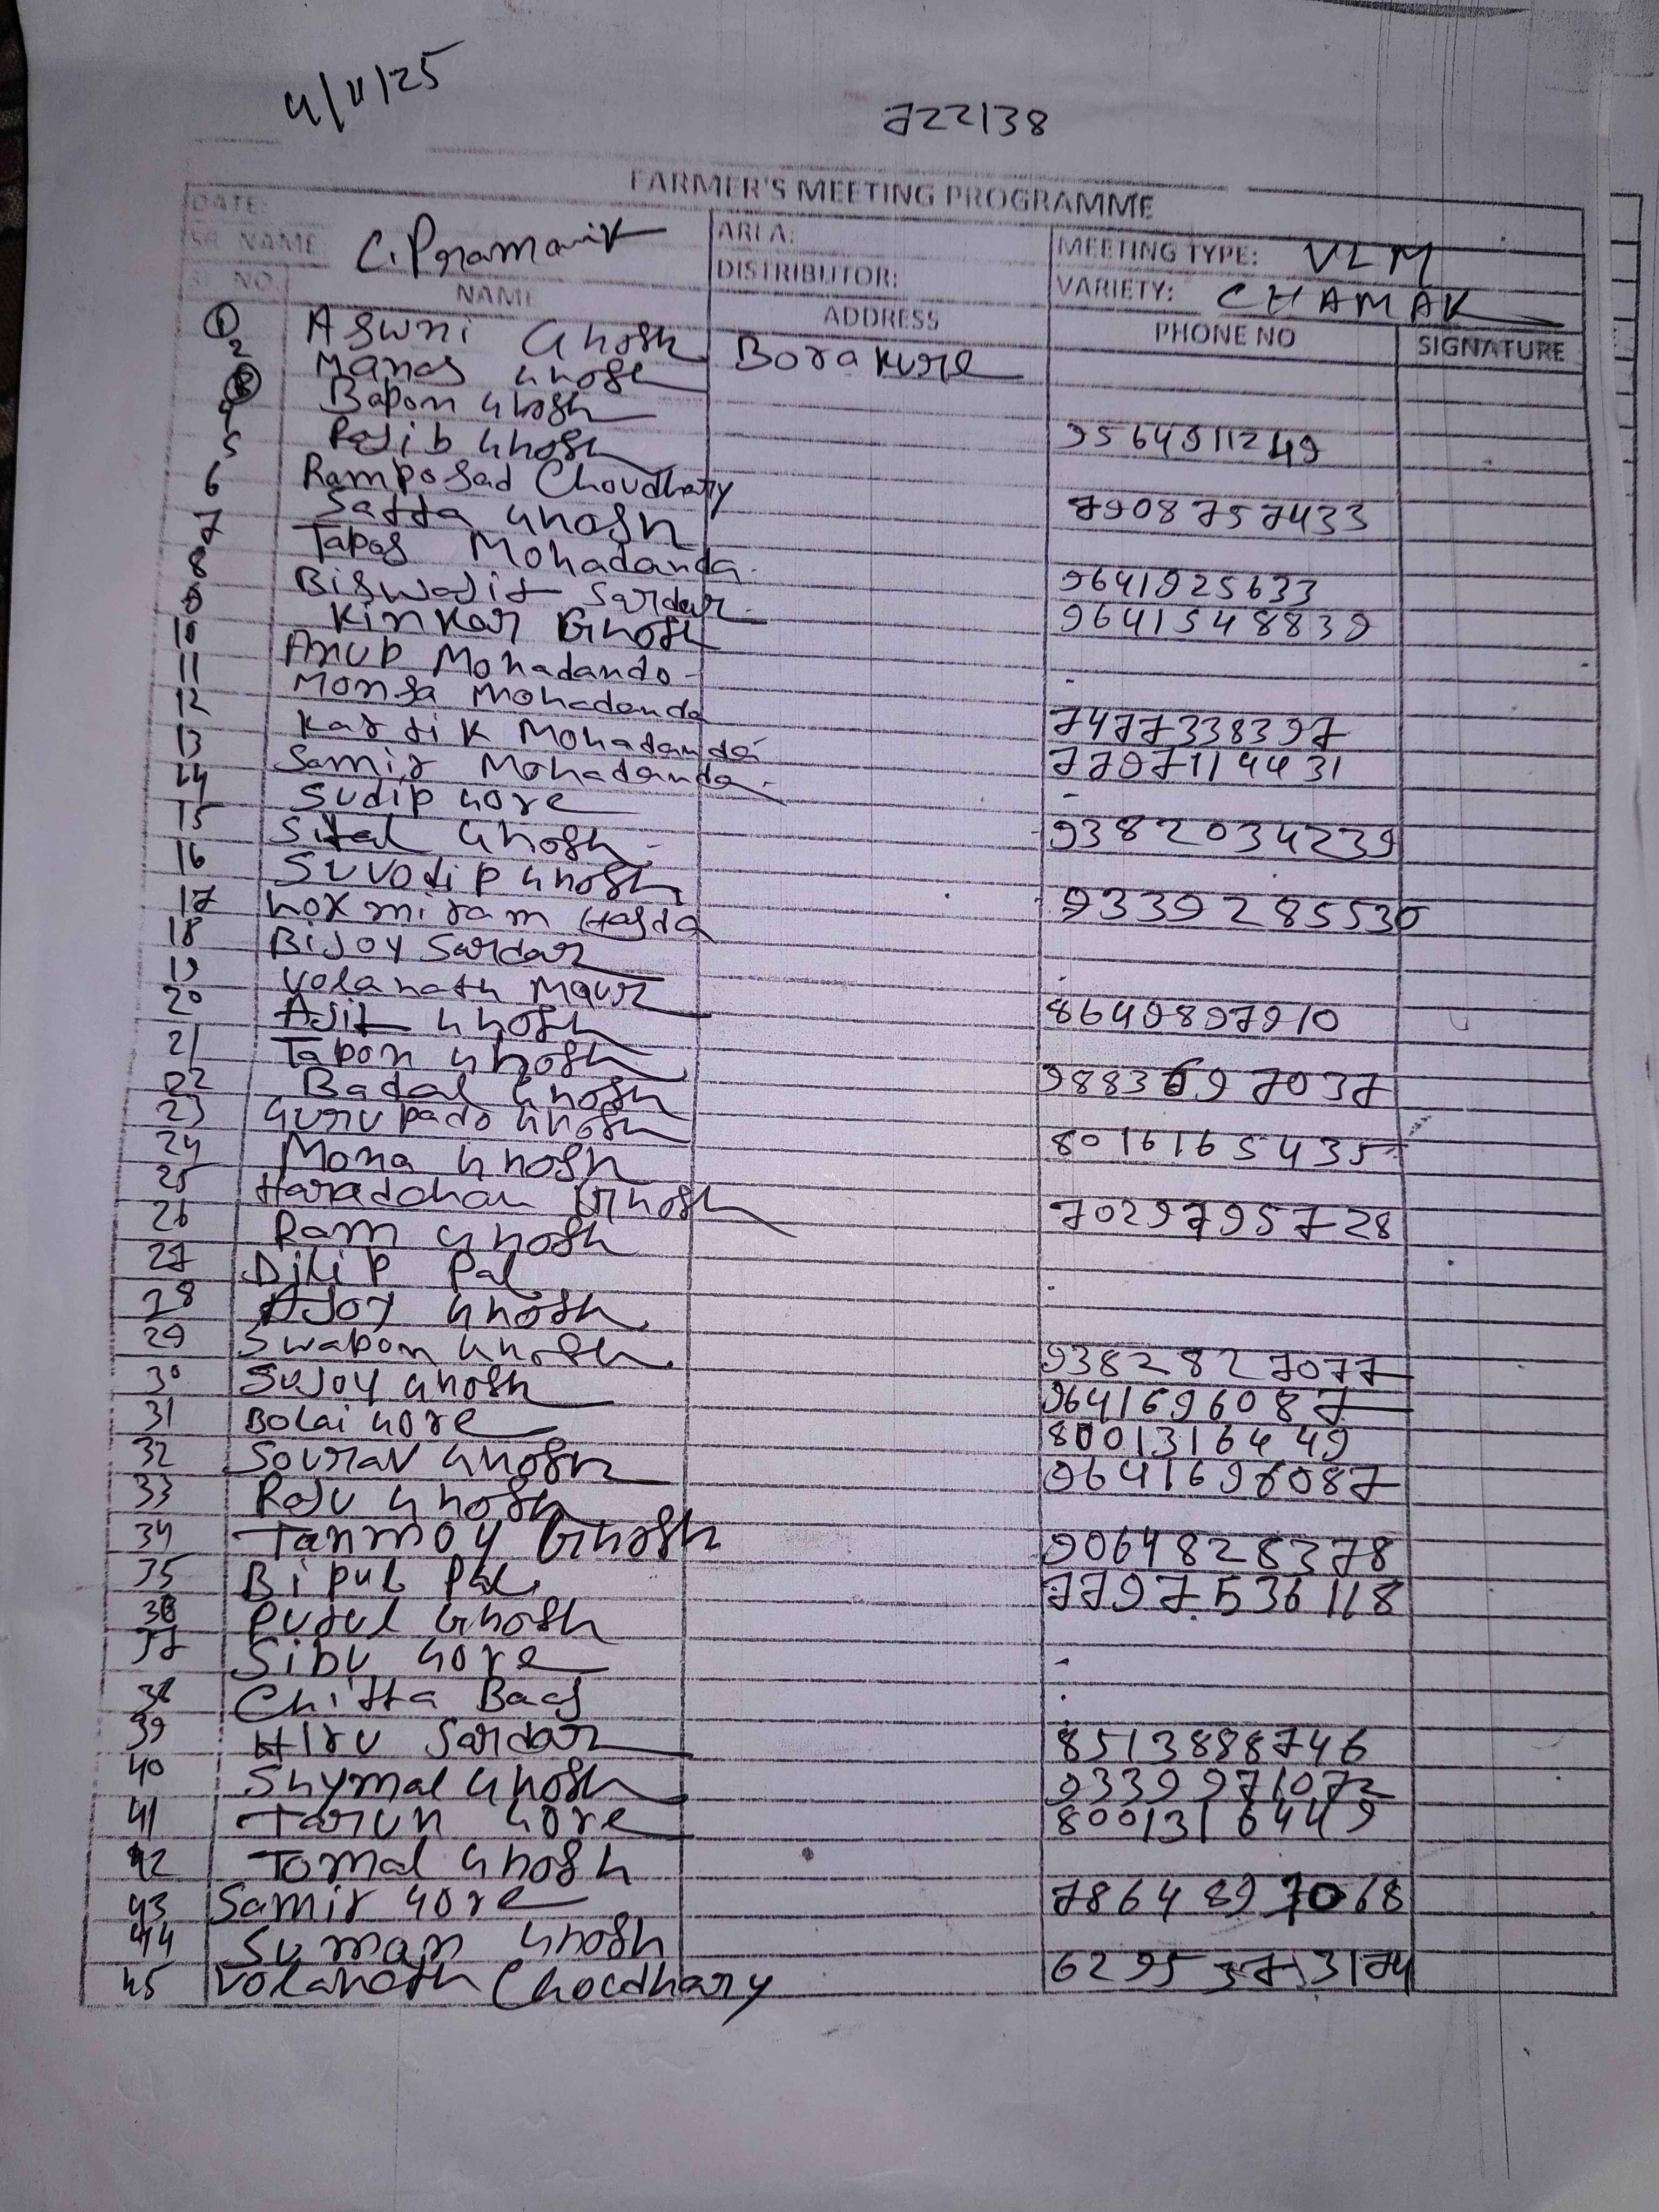 4/11/25
722138
FARMER'S MEETING PROGRAMME
DATE: AREA: MEETING TYPE: VLM
SR. NAME C. Pramanik DISTRIBUTOR: VARIETY: CHAMAK
SL NO. NAME ADDRESS PHONE NO SIGNATURE
1 Aswni Ghosh Borakure
2 Manas Ghosh
3 Bapon Ghosh
4 Rajib Ghosh 9564911249
5 Ramposad Choudhary
6 Satta Ghosh 7908757433
7 Tapas Mohadanda
8 Biswajit Sardar 9641925633
9 Kinkar Ghosh 9641548839
10 Anup Mohadando
11 Monsa Mohadanda
12 Kartik Mohadanda 7477338397
13 Samir Mohadanda 7797114431
14 Sudip Gore
15 Sital Ghosh 9382034239
16 Suvodip Ghosh
17 Loxmiram Hasda 9339285530
18 Bijoy Sardar
19 Volanath Maur
20 Ajit Ghosh 8649897910
21 Tapon Ghosh
22 Badal Ghosh 9883697037
23 Gurupado Ghosh
24 Mona Ghosh 8016165435
25 Haradohan Ghosh
26 Ram Ghosh 7029795728
27 Dilip Pal
28 Ajoy Ghosh
29 Swapon Ghosh 9382827077
30 Sujoy Ghosh 9641696087
31 Bolai Gore 8001316449
32 Sourav Ghosh 9641696087
33 Raju Ghosh
34 Tanmoy Ghosh 9064828378
35 Bipul Pal 7797536118
36 Putul Ghosh
37 Sibu Gore
38 Chitta Bag
39 Hiru Sardar 8513888746
40 Shymal Ghosh 9339971072
41 Tarun Gore 8001316449
42 Tomal Ghosh
43 Samir Gore 7864897068
44 Suman Ghosh
45 Volanath Choedhary